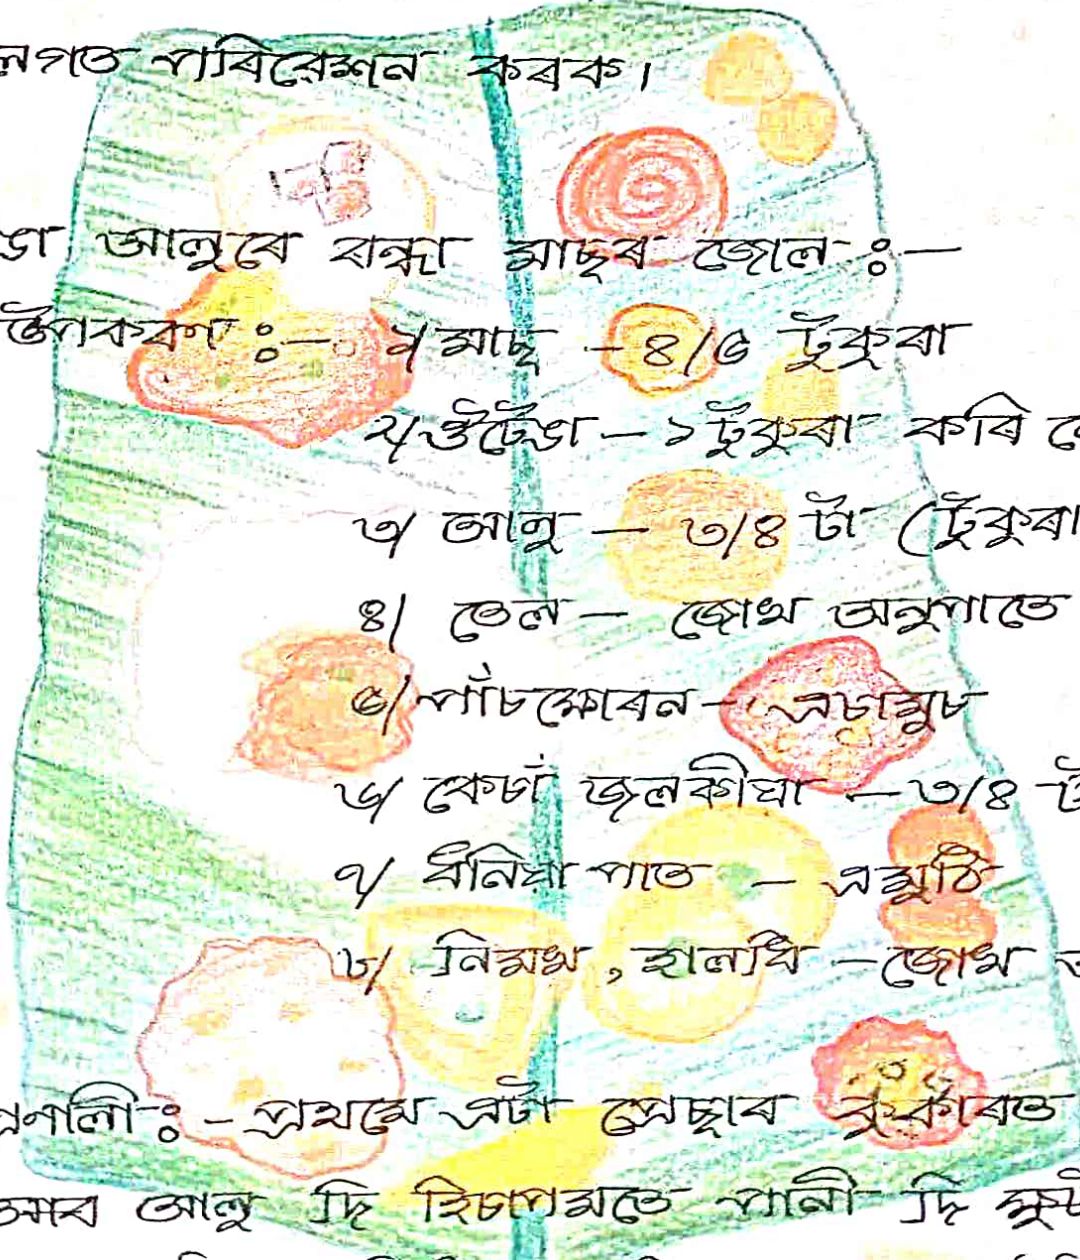 লগত পৰিৱেশন কৰক।
আলুৰে ৰান্ধা মাছৰ জোল :-
উপকৰণ :- ১/ মাছ - ৪/৫ টুকুৰা
২/ ঔটেঙা - ১ টুকুৰা কৰি
৩/ আলু - ৩/৪ টা (টুকুৰা
৪/ তেল - জোখ অনুপাতে
৫/ পাঁচফোৰন - এচামুচ
৬/ কেচাঁ জলকীয়া - ৩/৪
৭/ ধনিয়া পাত - এমুঠি
৮/ নিমখ, হালধি - জোখ
প্ৰণালী :- প্ৰথমে এটা প্ৰেছাৰ কুকাৰত
আৰু আলু দি হিচাপমতে পানী দি